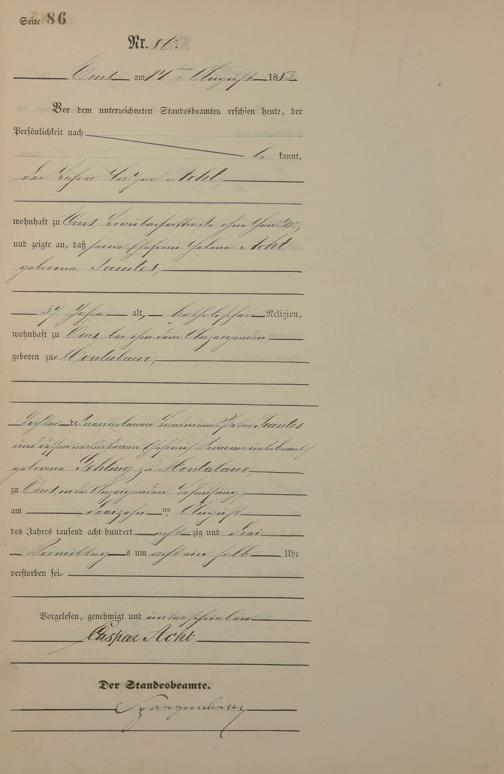 Seite 86
Nr. 86.
Ems am 14ten August 1883
Vor dem unterzeichneten Standesbeamten erschien heute, der
Persönlichkeit nach
be kannt,
der Caspar Acht,
wohnhaft zu Ems, ohne
und zeigte an, daß seine Ehefrau Helena Acht
geborene
37 Jahre alt, katholischer Religion,
wohnhaft zu Ems bei ihm dem Anzeigenden
geboren zu Montabaur,
Tochter de
und dessen Ehefrau
geborene zu Montabaur
zu Ems in des Anzeigenden Behausung,
am dreizehnten August
des Jahres tausend acht hundert acht zig und drei
Vormittags um acht ein halb Uhr
verstorben sei.
Vorgelesen, genehmigt und unterschrieben
Caspar Acht
Der Standesbeamte.